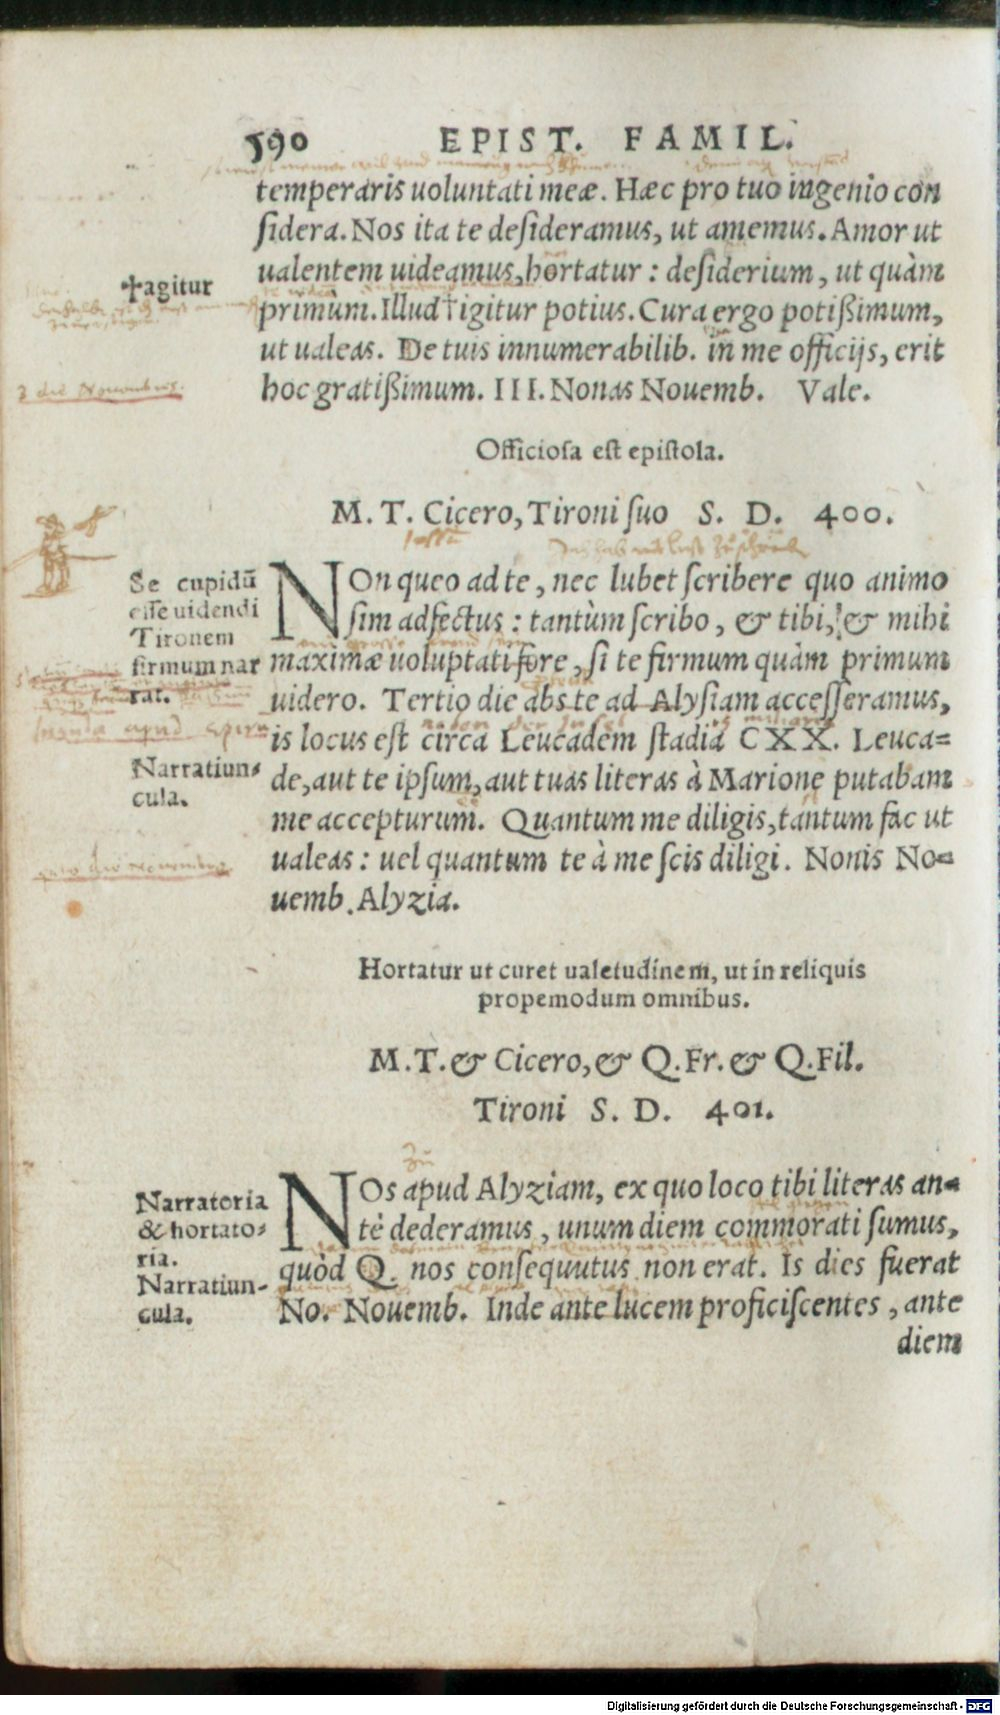 590 EPIST. FAMIL.
temperaris uoluntati meæ. Hæc pro tuo ingenio con
sidera. Nos ita te desideramus, ut amemus. Amor ut
ualentem uideamus, hortatur: desiderium, ut quàm
✝agitur
primùm. Illud † igitur potius. Cura ergo potißimum,
ut ualeas. De tuis innumerabilib. in me officijs, erit
3 die Nouembris.
hoc gratißimum. III. Nonas Nouemb. Vale.
Officiosa est epistola.
M. T. Cicero, Tironi suo S. D. 400.
Se cupidū
esse uidendi
Tironem
firmum nar
rat.
NOn queo ad te, nec lubet scribere quo animo
sim adfectus: tantùm scribo, & tibi, & mihi
maximæ uoluptati fore, si te firmum quàm primum
uidero. Tertio die abs te ad Alysiam accesseramus,
is locus est circa Leucadem stadia CXX. Leuca=
Narratiun=
cula.
de, aut te ipsum, aut tuas literas à Marione putabam
me accepturum. Quantum me diligis, tantum fac ut
ualeas: uel quantum te à me scis diligi. Nonis No=
uemb. Alyzia.
Hortatur ut curet ualetudinem, ut in reliquis
propemodum omnibus.
M. T. & Cicero, & Q. Fr. & Q. Fil.
Tironi S. D. 401.
Narratoria
& hortato=
ria.
Narratiun-
cula.
NOs apud Alyziam, ex quo loco tibi literas an=
tè dederamus, unum diem commorati sumus,
quòd Q. nos consequutus non erat. Is dies fuerat
No. Nouemb. Inde ante lucem proficiscentes, ante
diem
Digitalisierung gefördert durch die Deutsche Forschungsgemeinschaft - DFG